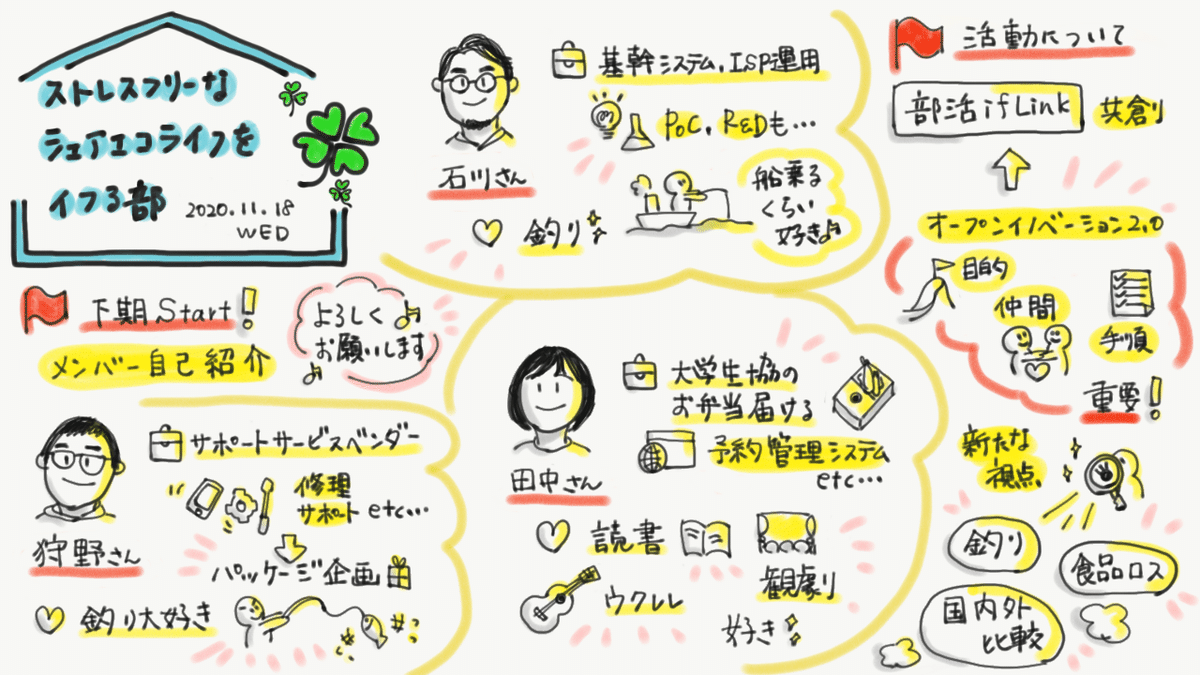 ストレスフリーな
シェアエコライフを
イフる部
2020.11.18
WED
下期Start!
メンバー自己紹介
よろしく
お願いします
狩野さん
サポートサービスベンダー
修理
サポートetc...
パッケージ企画
釣り大好き
石川さん
基幹システム,ISP運用
PoC,R&Dも...
釣り
船乗る
くらい
好き
田中さん
大学生協の
お弁当届ける
予約管理システム
etc...
読書
観劇
ウクレレ
好き
活動について
部活ifLink
共創
オープンイノベーション2.0
目的
仲間
手順
重要!
新たな
視点
釣り
食品ロス
国内外
比較